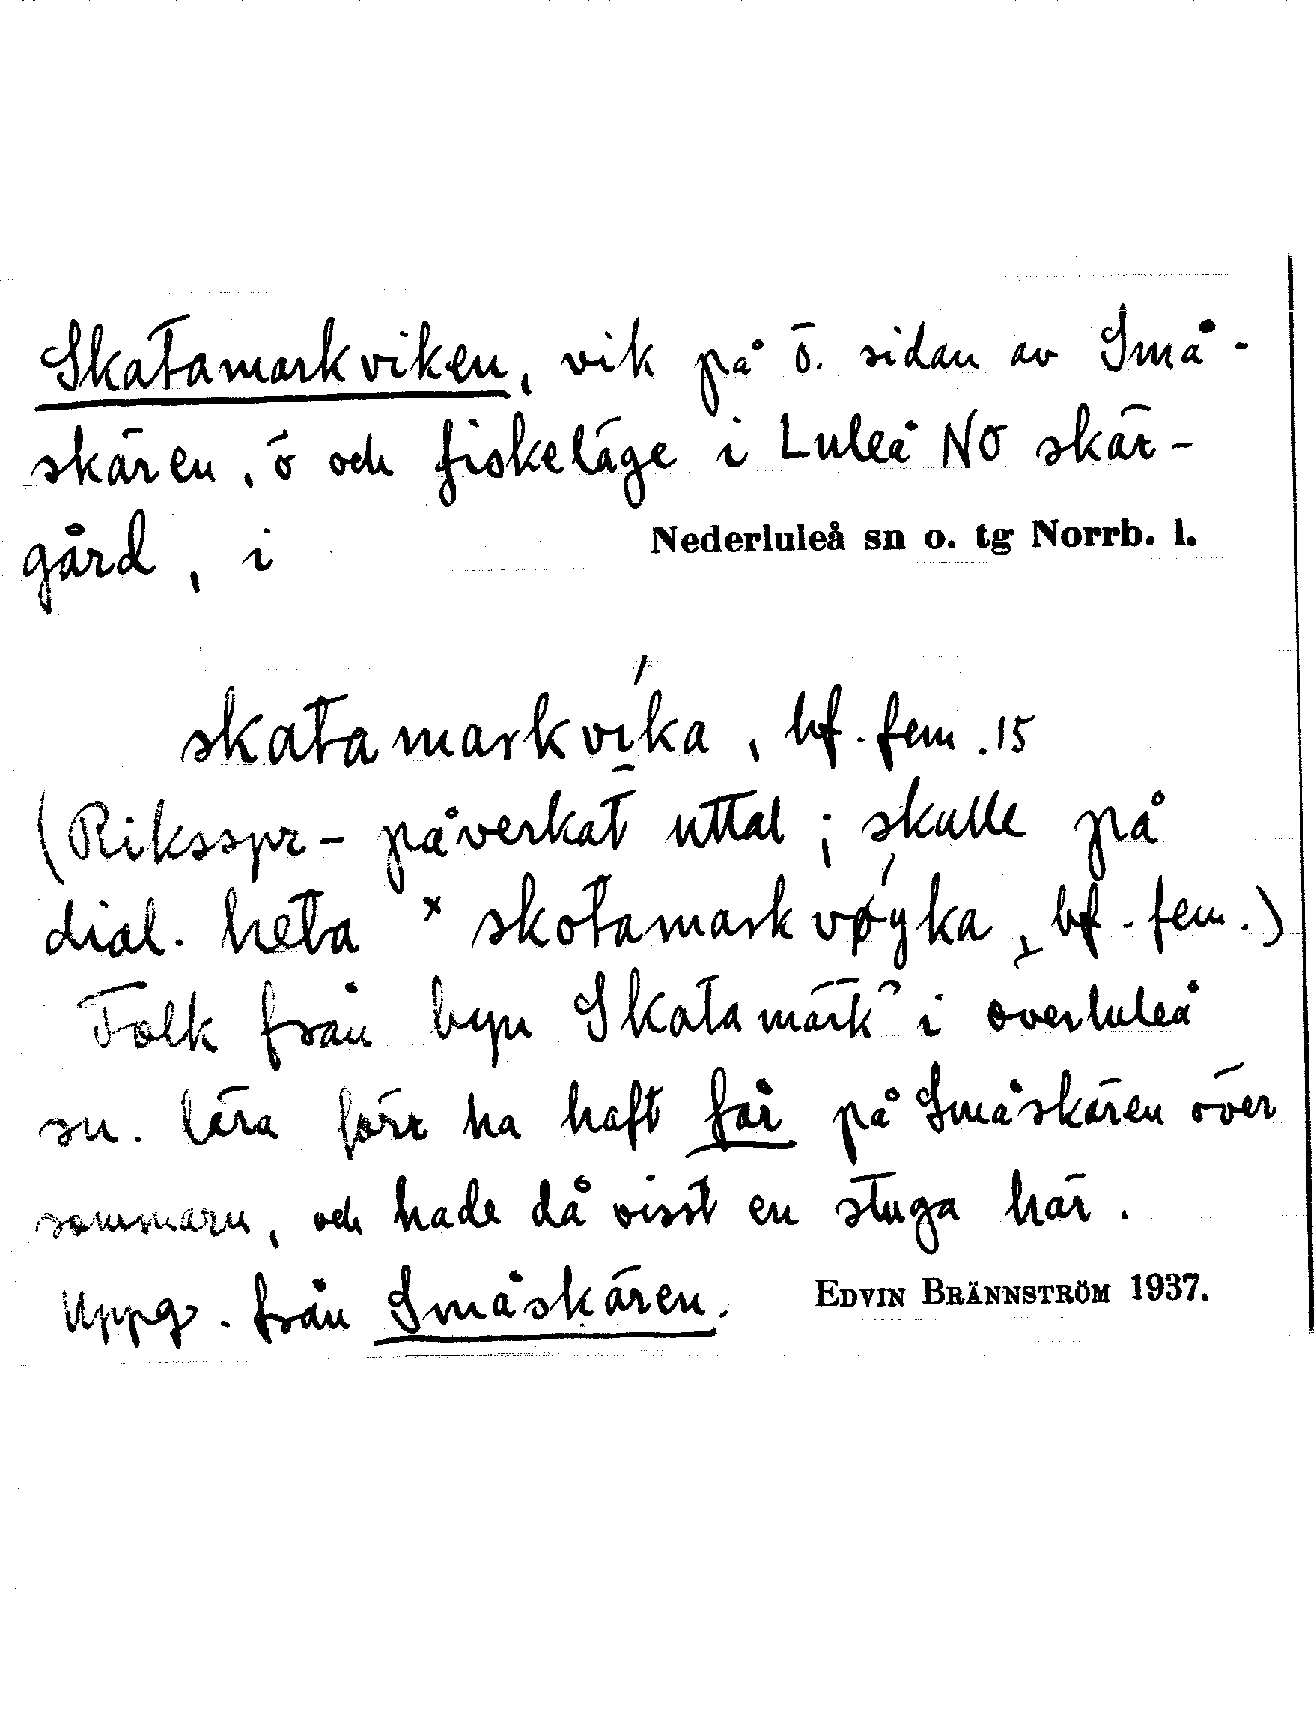 Skatamarkviken, vik på ö. sidan av Små-
skären, ö och fiskeläge i Luleå NÖ skär-
gård, i Nederluleå sn o. tg Norrb. l.
skatamarkvi̍ka, bf. fem. 15
(Riksspr-påverkat uttal; skulle på
dial. heta × skotamarkvøyka, bf. fem.)
Folk från byn Skatamark i Överluleå
sn. lära förr ha haft får på Småskären över
sommarn, och hade då visst en stuga här.
Uppg. från Småskären. EDVIN BRÄNNSTRÖM 1937.